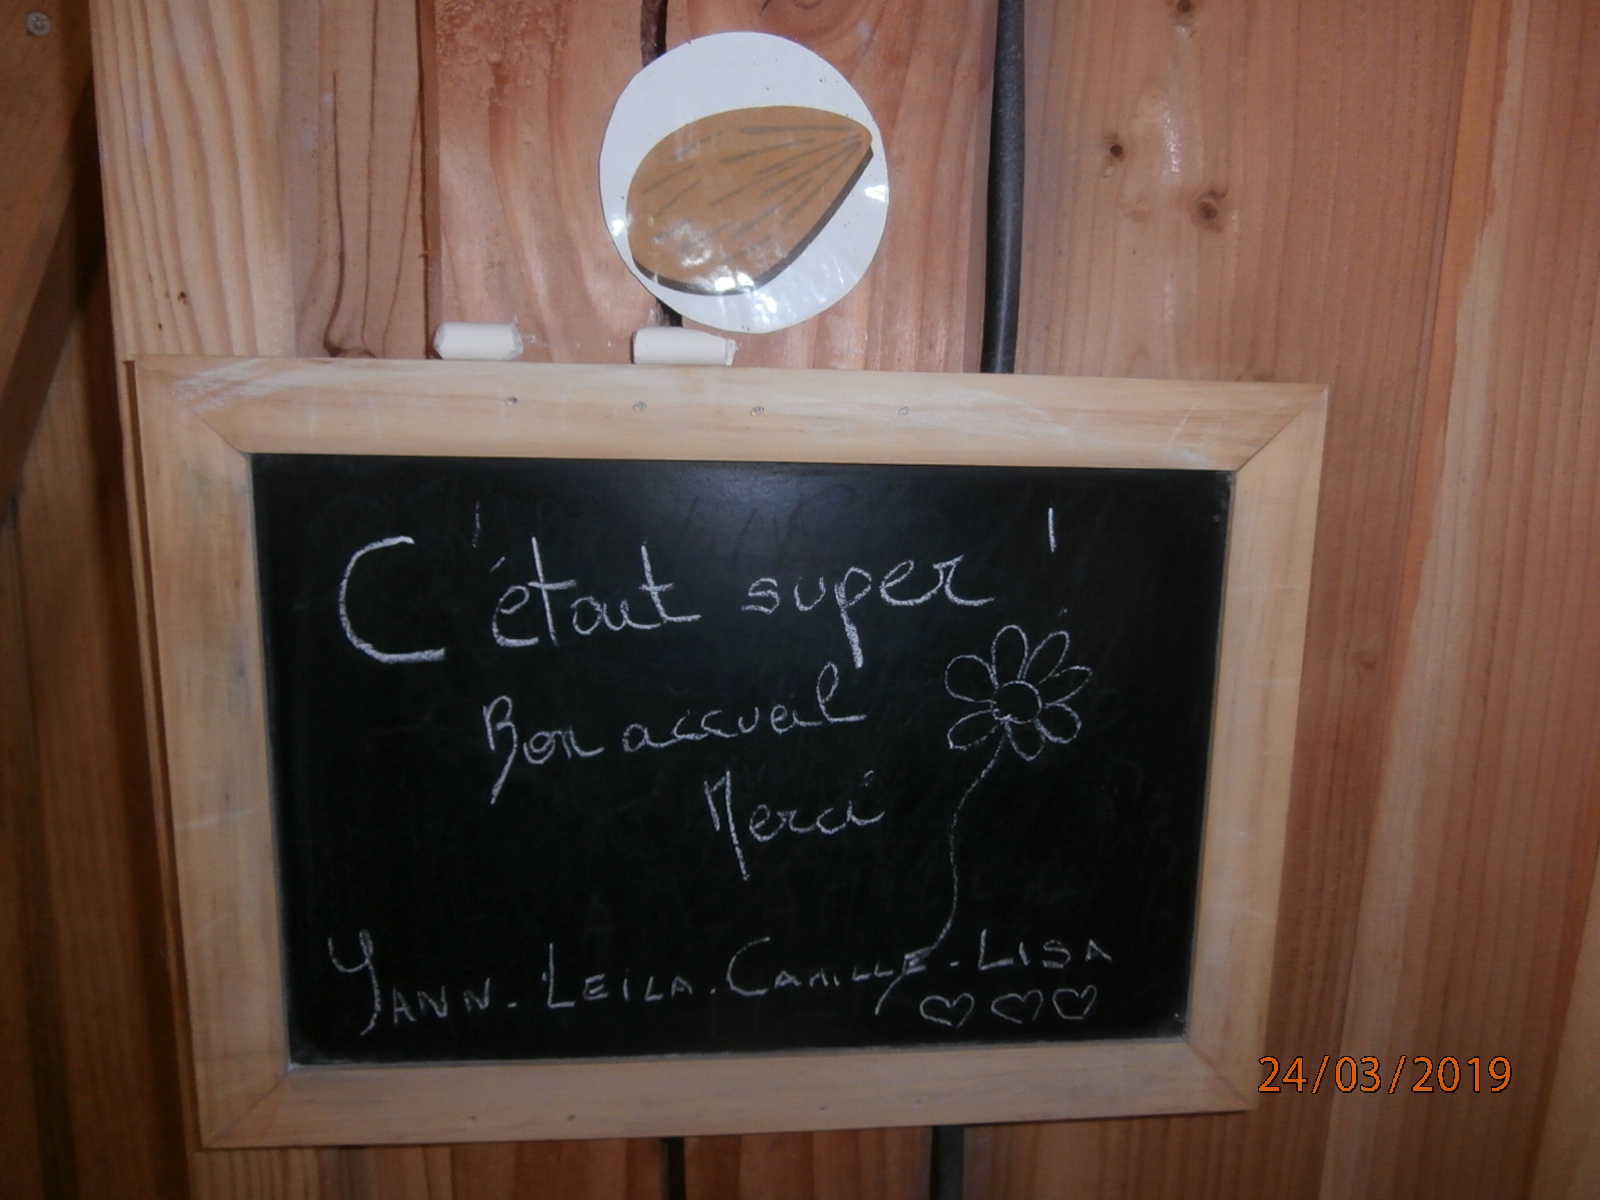 C'était super !
Bon accueil
Merci
YANN. LEILA. CAMILLE. LISA
24/03/2019